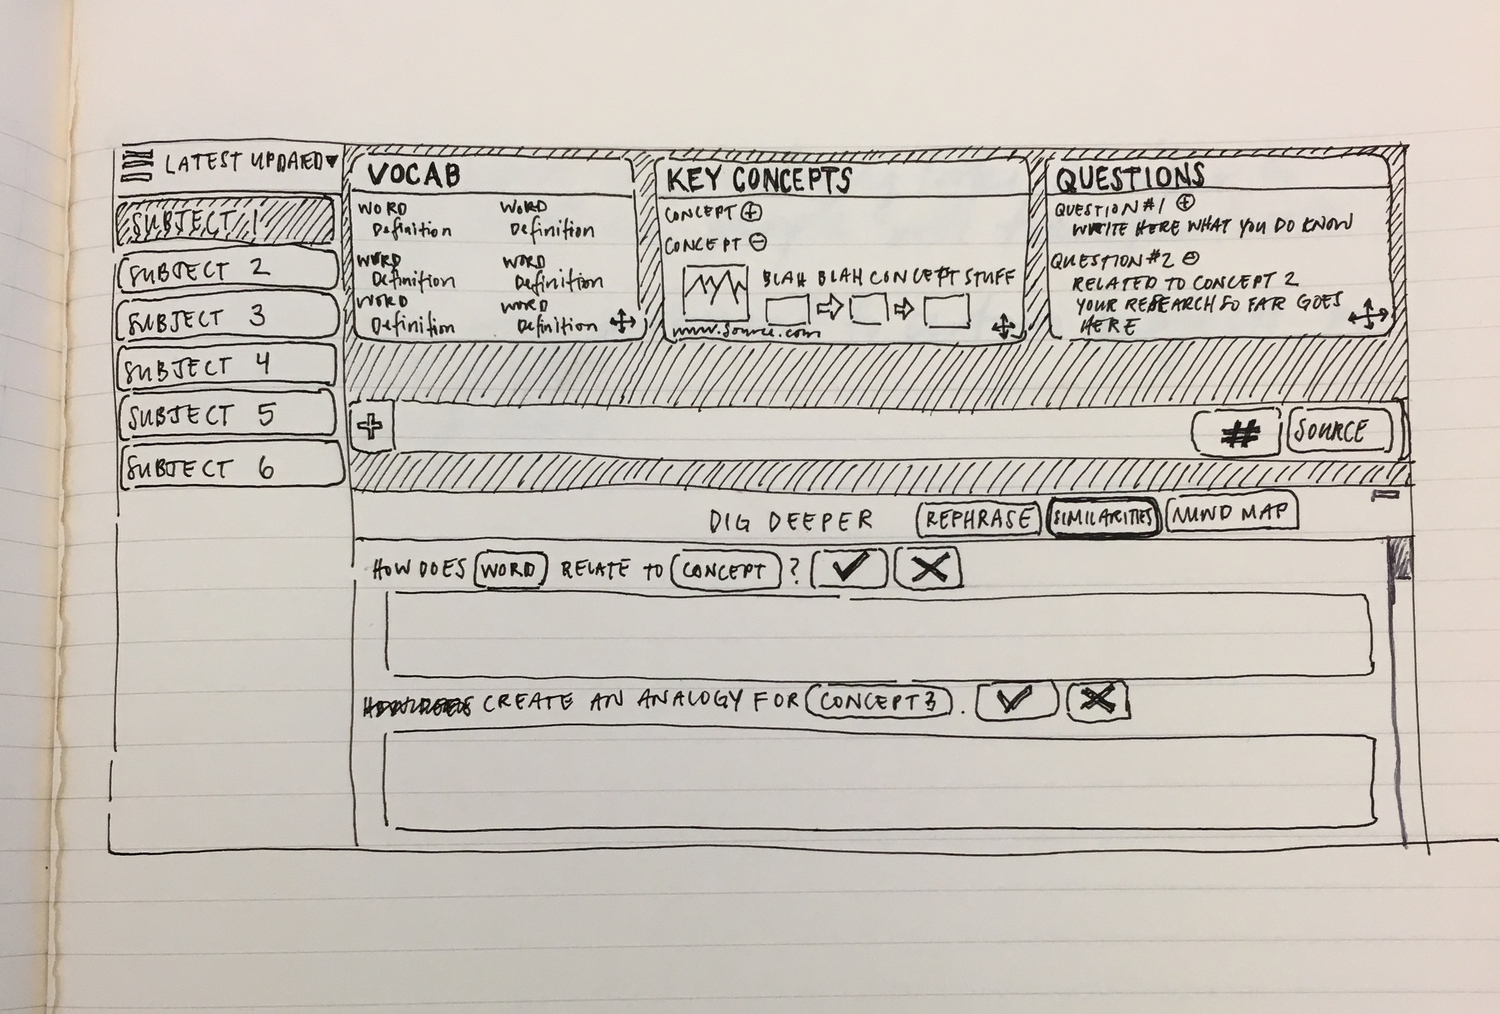 LATEST UPDAED
SUBJECT 1
SUBJECT 2
SUBJECT 3
SUBJECT 4
SUBJECT 5
SUBJECT 6
VOCAB
WORD WORD
Definition Definition
WORD WORD
Definition Definition
WORD WORD
Definition Definition
KEY CONCEPTS
CONCEPT +
CONCEPT -
BLAH BLAH CONCEPT STUFF
www.source.com
QUESTIONS
QUESTION #1 +
WRITE HERE WHAT YOU DO KNOW
QUESTION #2 -
RELATED TO CONCEPT 2
YOUR RESEARCH SO FAR GOES
HERE
+ # SOURCE
DIG DEEPER REPHRASE SIMILARITIES MIND MAP
HOW DOES WORD RELATE TO CONCEPT ?
CREATE AN ANALOGY FOR CONCEPT 3.